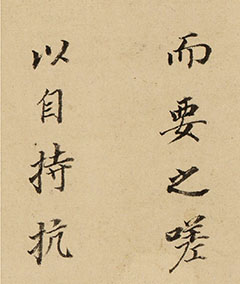 而要之嗟
以自持抗